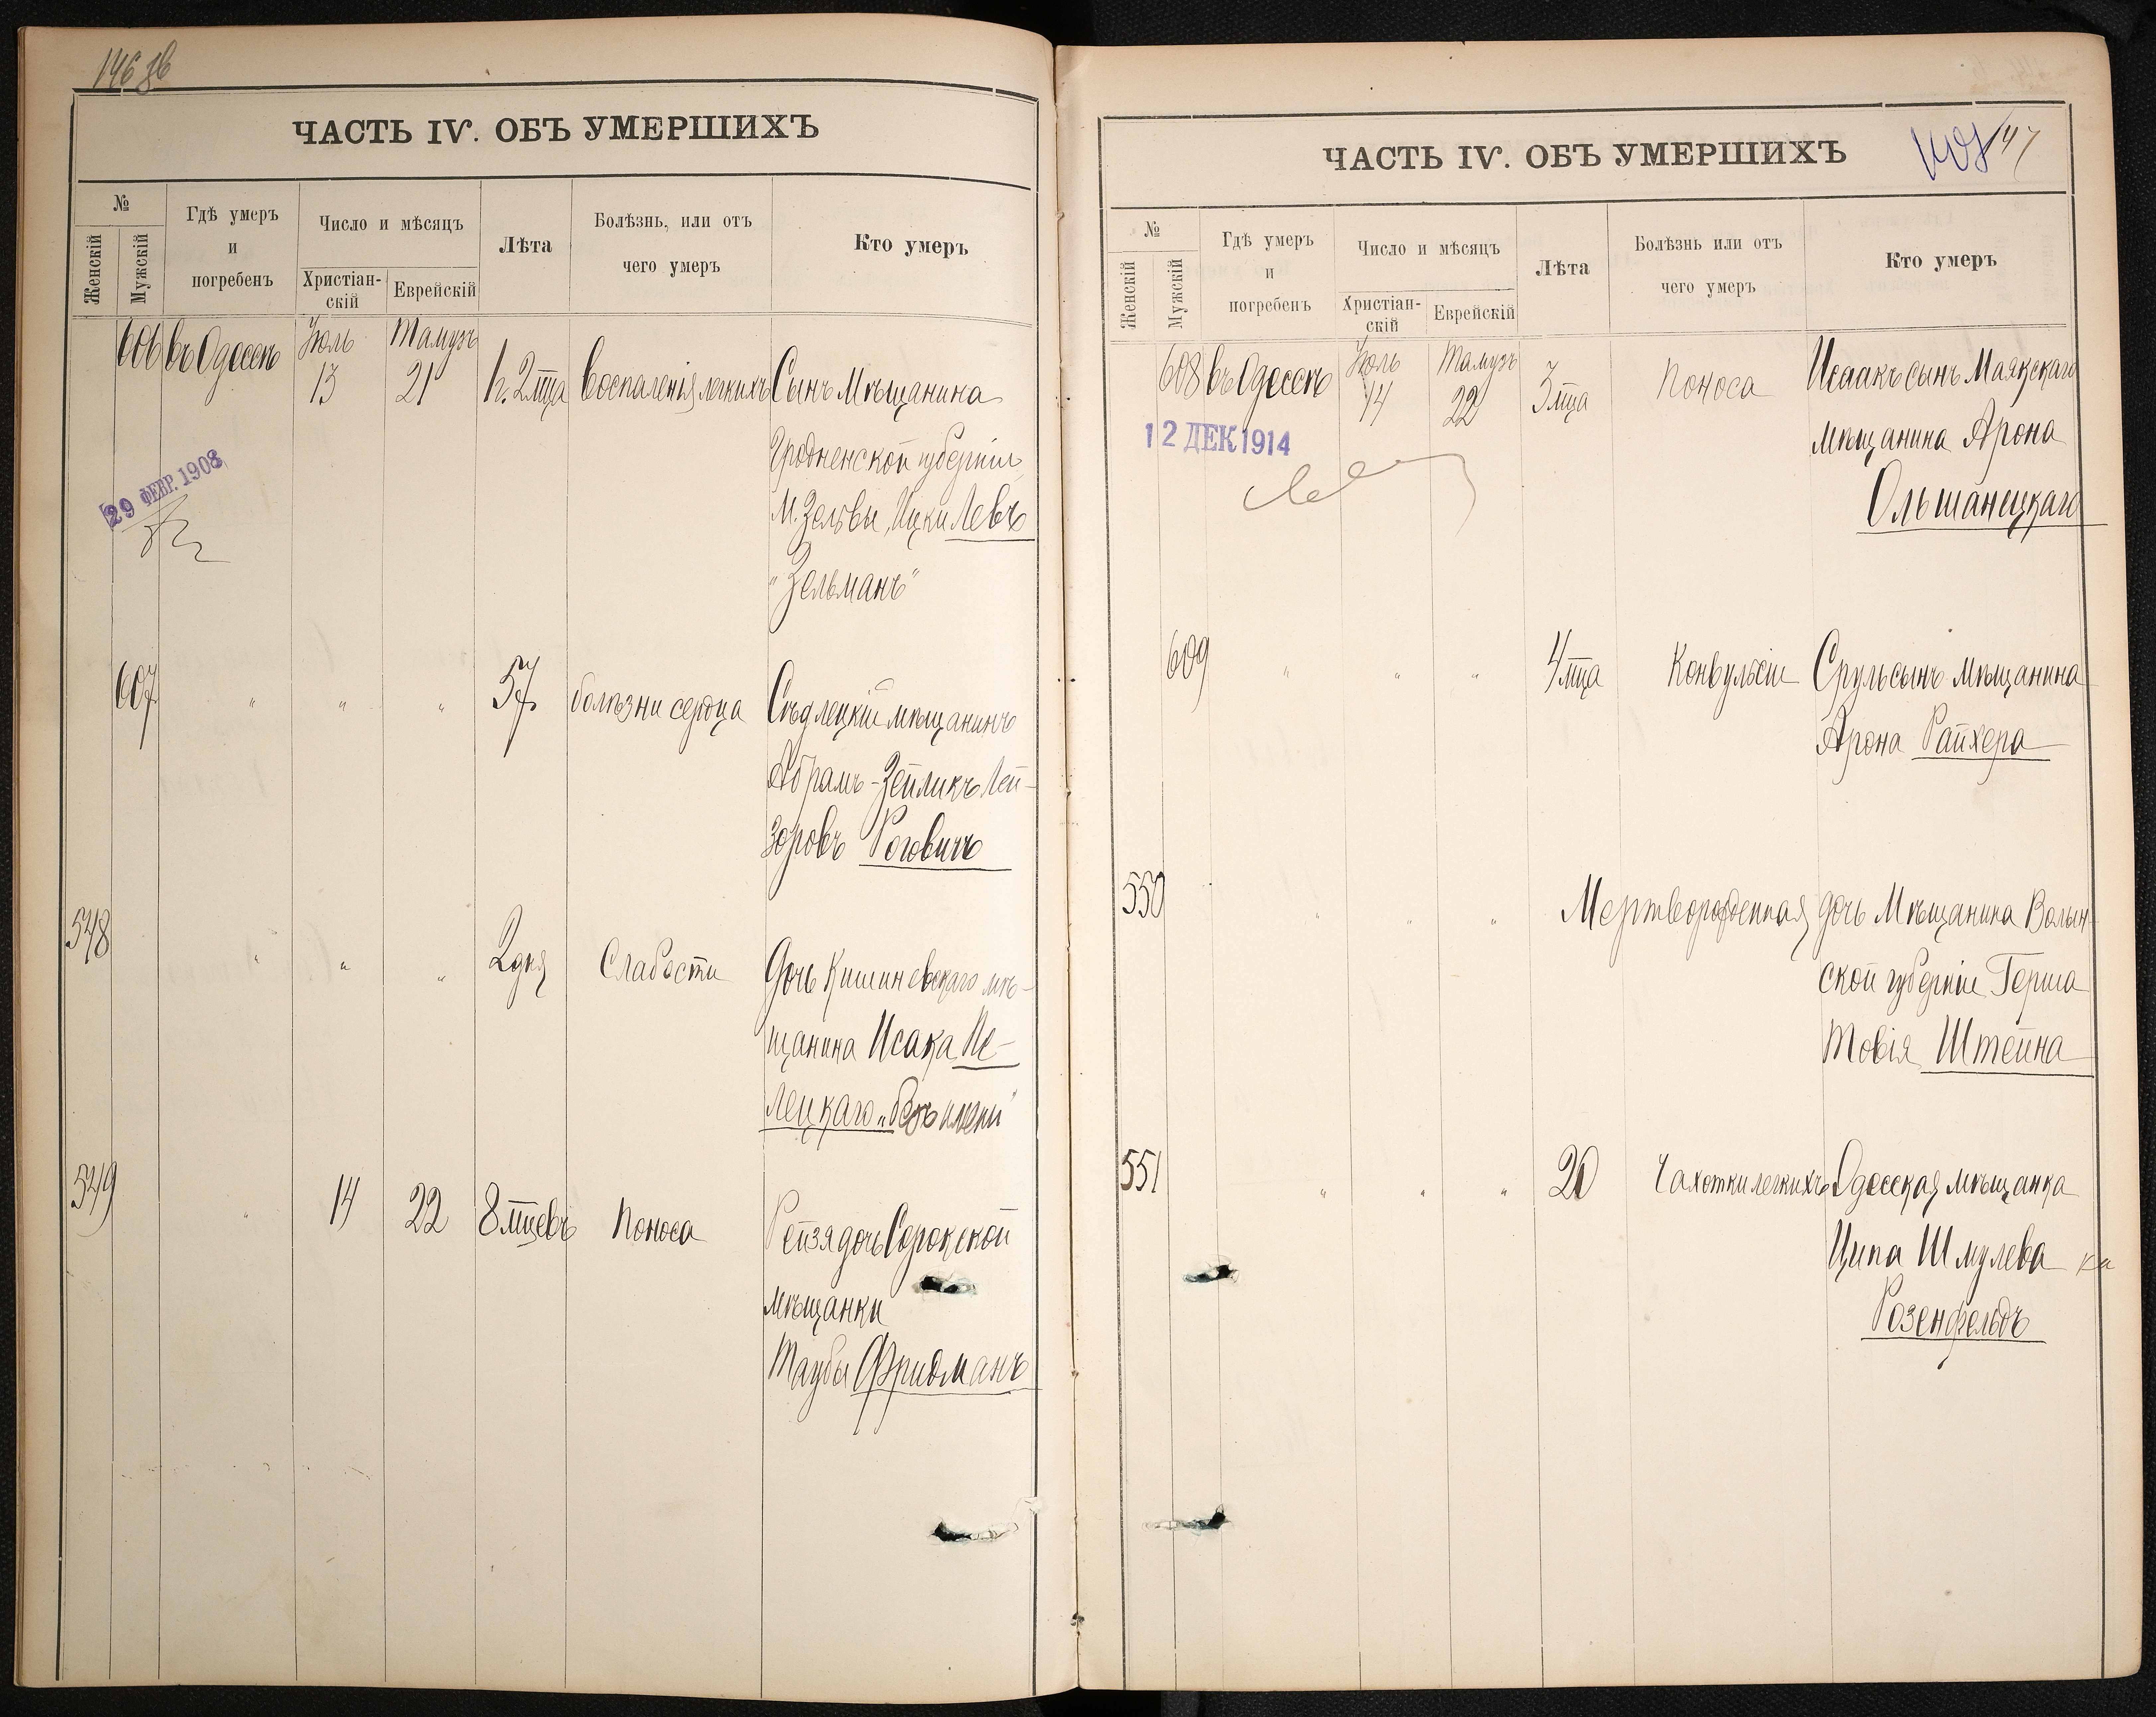 146 об
ЧАСТЬ IV. ОБЪ УМЕРШИХЪ
№
Женскій
Мужскій
Гдѣ умеръ
и
погребенъ
Число и мѣсяцъ
Христіан-
скій
Еврейскій
Лѣта
Болѣзнь, или отъ
чего умеръ
Кто умеръ
606 въ Одессѣ Іюль 13 Тамузъ 21 2 мца Воспаленія легкихъ Сынъ Мѣщанина
Гродненской губерніи
М. Зельвы, Ицки Левъ
"Зельманъ"
29 ФЕВР. 1908
607 " " " 57 болѣзни сердца Сѣдлецкій мѣщанинъ
Абрамъ-Зейликъ Лей-
зоровъ Роговичъ
548 " " " 2 дня Слабости Дочь Кишиневскаго мѣ-
щанина Исака Пе-
лецкаго "безъ имени"
549 " 14 22 8 мцевъ Поноса Рейзя дочь Сорокской
мѣщанки
Таубы Фридманъ
ЧАСТЬ IV. ОБЪ УМЕРШИХЪ
147
№
Женскій
Мужскій
Гдѣ умеръ
и
погребенъ
Число и мѣсяцъ
Христіан-
скій
Еврейскій
Лѣта
Болѣзнь или отъ
чего умеръ
Кто умеръ
608 въ Одессѣ Іюль 14 Тамузъ 22 3 мца Поноса Исаакъ сынъ Маякскаго
мѣщанина Арона
Ольшанецкаго
12 ДЕК 1914
609 " " " 4 мца Конвульсіи Сруль сынъ мѣщанина
Арона Райхера
550 " " " Мертворожденная дочь Мѣщанина Волын-
ской губерніи Герша
Товія Штейна
551 " " " 20 Чахотки легкихъ Одесская мѣщанка
Ципа Шмулева
Розенфельдъ